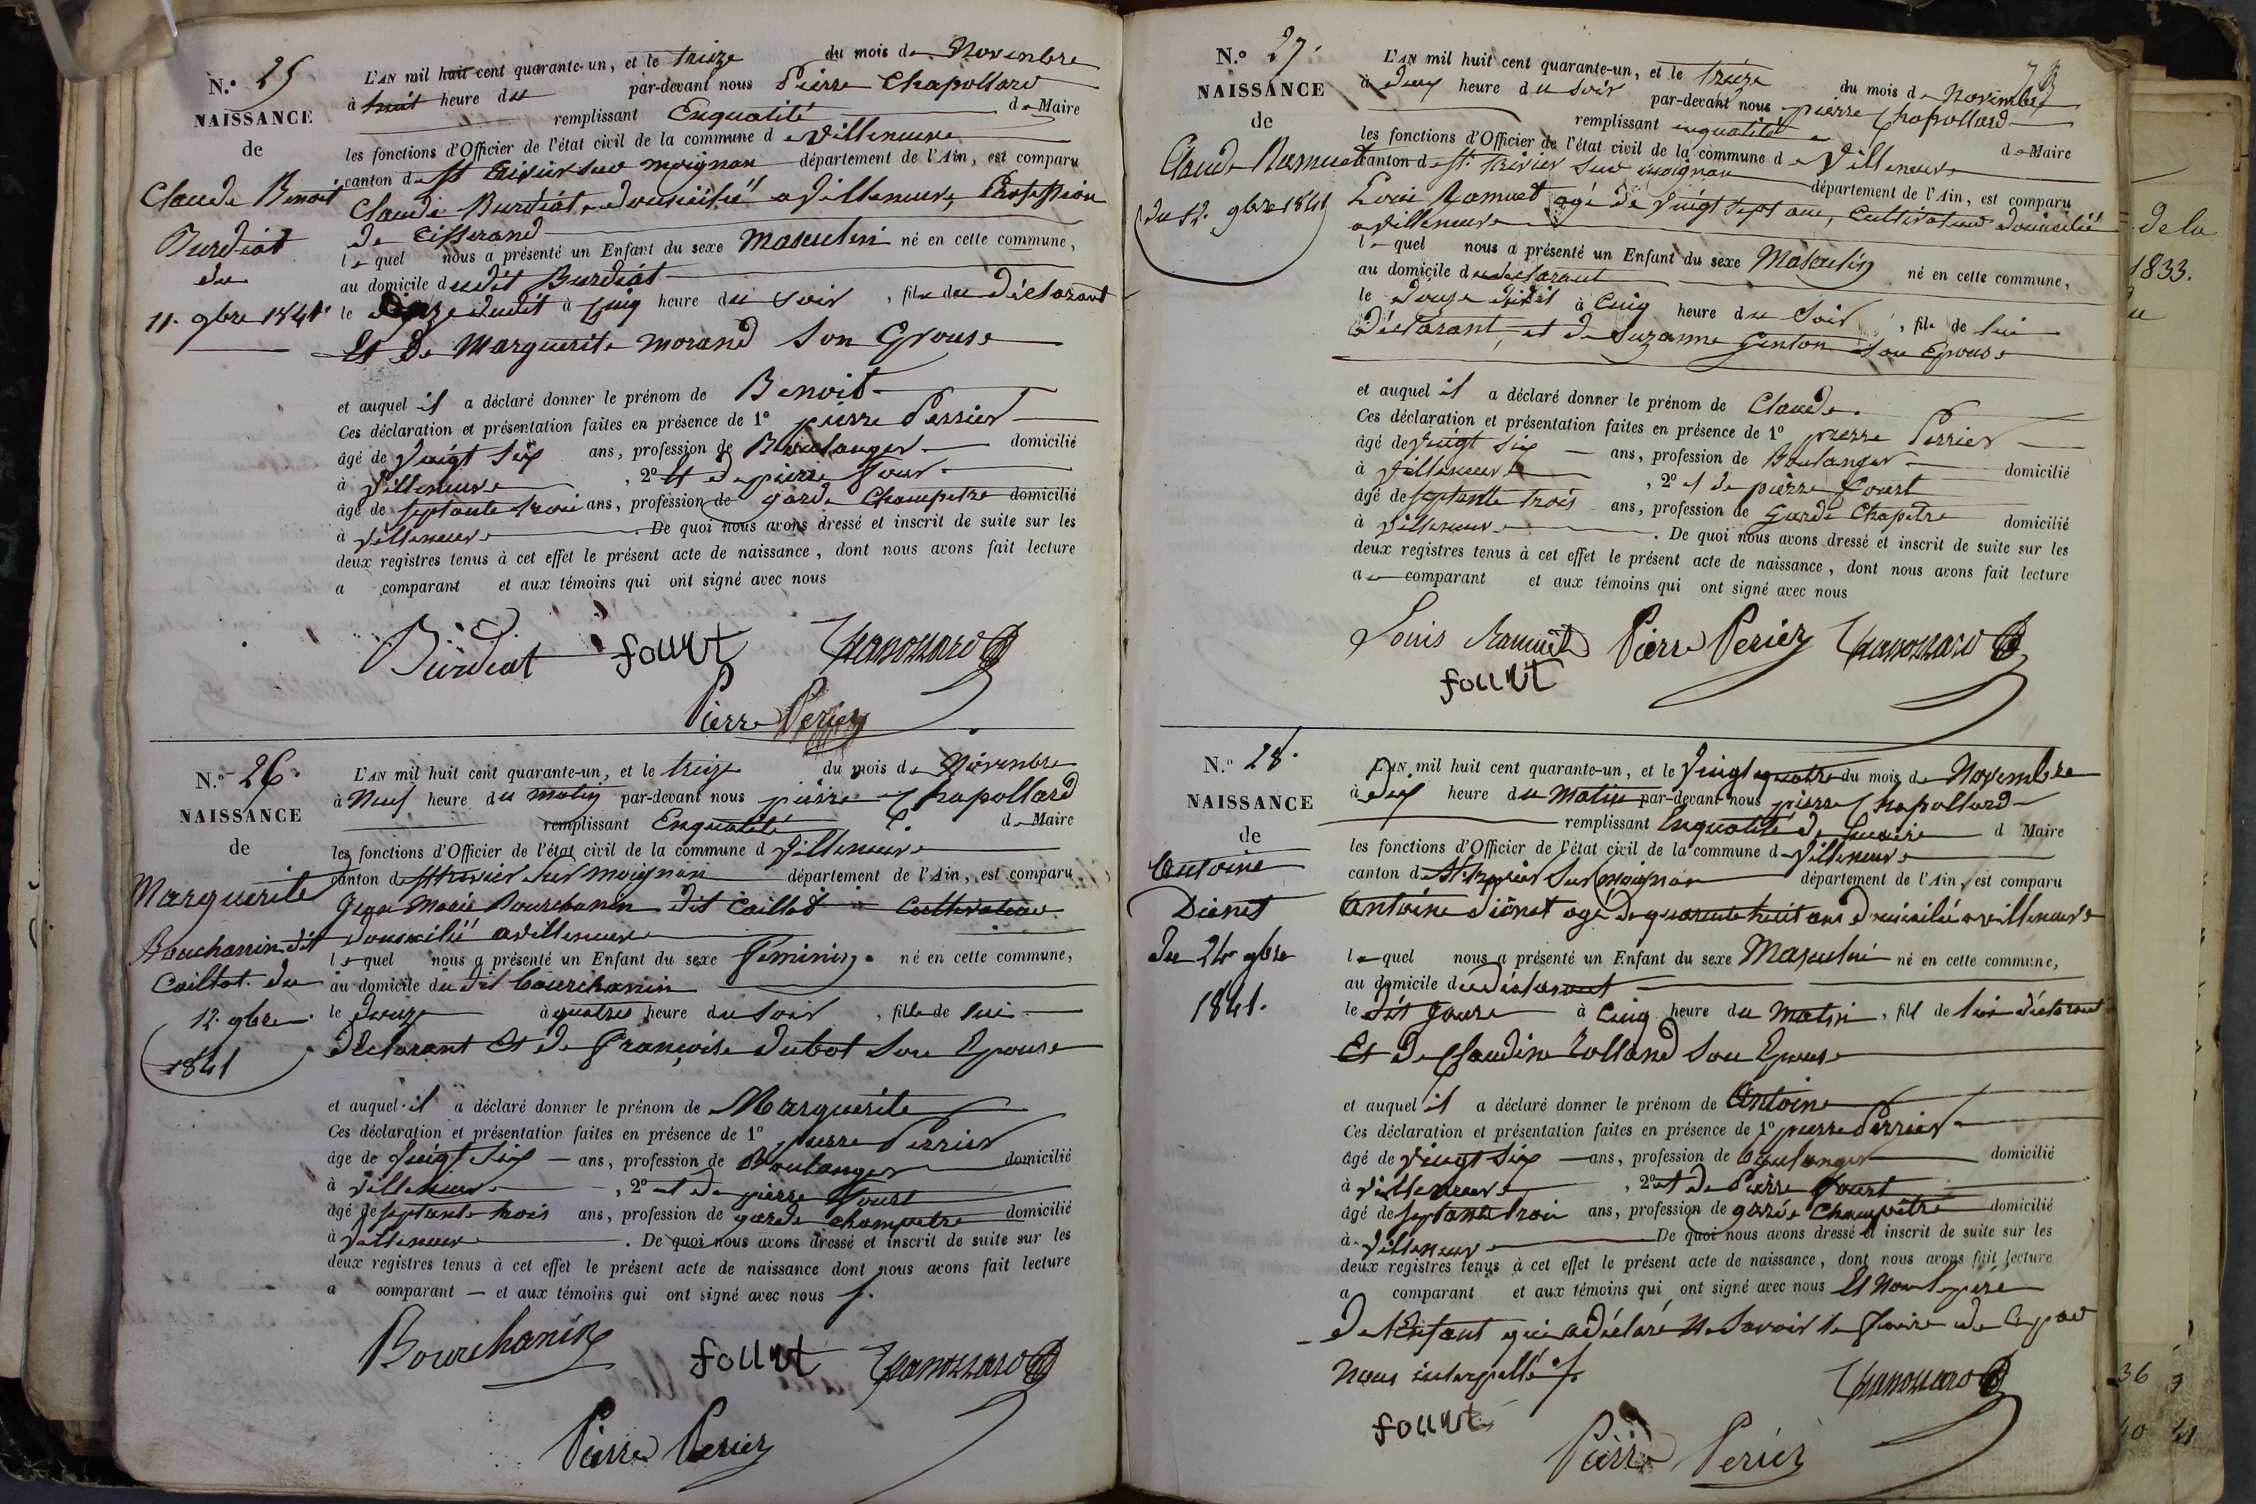 N.º 25
NAISSANCE
de
Claude Benoit
Burdiat
du
11. 9bre 1841.
L'AN mil huit cent quarante-un, et le treize du mois de Novembre
à huit heure du par-devant nous Pierre Chapollard
remplissant Enqualité de Maire
les fonctions d'Officier de l'état civil de la commune de Villeneuve
canton de St trivier sur moignan département de l'Ain, est comparu
Claude Burdiat, domicilié a Villeneuve, Profession
de tisserand
lequel nous a présenté un Enfant du sexe Masculin né en cette commune,
au domicile dudit Burdiat
le dudit à Cinq heure du soir, fils du Déclarant
Et de Marguerite morand Son Epouse
et auquel il a déclaré donner le prénom de Benoit
Ces déclaration et présentation faites en présence de 1º pierre Perrier
âgé de Vingt Six ans, profession de Boulanger domicilié
à Villeneuve, 2º et de pierre Fourt
âgé de septante trois ans, profession de garde Champetre domicilié
à Villeneuve. De quoi nous avons dressé et inscrit de suite sur les
deux registres tenus à cet effet le présent acte de naissance, dont nous avons fait lecture
a comparant et aux témoins qui ont signé avec nous
Burdiat fourt Chapollard
Pierre Perier
N.º 26.
NAISSANCE
de
Marguerite
Bourchanin dit
Caillot. du
12. 9bre.
1841
L'AN mil huit cent quarante-un, et le treize du mois de Novembre
à Neuf heure du matin par-devant nous pierre Chapollard
remplissant Enqualité de Maire
les fonctions d'Officier de l'état civil de la commune d Villeneuve
canton de St trivier sur moignan département de l'Ain, est comparu
Jean Marie Bourchanin dit Caillot Cultivateur
domicilié a villeneuve
lequel nous a présenté un Enfant du sexe Féminin. né en cette commune,
au domicile du dit bourchanin
le douze à quatres heure du soir, fille de lui
déclarant Et de Françoise dubot Son Epouse
et auquel il a déclaré donner le prénom de Marguerite
Ces déclaration et présentation faites en présence de 1º pierre Perrier
âge de Vingt Six ans, profession de Boulanger domicilié
à villeneuve, 2º et de pierre Fourt
âgé de septante trois ans, profession de garde champetre domicilié
à Villeneuve. De quoi nous avons dressé et inscrit de suite sur les
deux registres tenus à cet effet le présent acte de naissance dont nous avons fait lecture
a comparant et aux témoins qui ont signé avec nous
Bourchanin fourt Chapollard
Pierre Perier
N.º 27.
NAISSANCE
de
Claude Ramuet
du 12. 9bre 1841
L'AN mil huit cent quarante-un, et le treize du mois de Novembre
à deux heure du soir par-devant nous pierre Chapollard
remplissant enqualité de Maire
les fonctions d'Officier de l'état civil de la commune de Villeneuve
canton de St. trivier sur moignan département de l'Ain, est comparu
Louis Ramuet agé de Vingt Sept ans, Cultivateur domicilié
a villeneuve
lequel nous a présenté un Enfant du sexe Masculin né en cette commune,
au domicile du declarant
le douze dudit à Cinq heure du Soir, fils de lui
Déclarant, et de Suzanne Genton Son Epouse
et auquel il a déclaré donner le prénom de Claude.
Ces déclaration et présentation faites en présence de 1º pierre Perrier
âgé de Vingt Six ans, profession de Boulanger domicilié
à Villeneuve, 2º et de pierre Fourt
âgé de septante trois ans, profession de Garde Chapetre domicilié
à Villeneuve. De quoi nous avons dressé et inscrit de suite sur les
deux registres tenus à cet effet le présent acte de naissance, dont nous avons fait lecture
a comparant et aux témoins qui ont signé avec nous
Louis Ramuet Pierre Perier Chapollard
fourt
N.º 28.
NAISSANCE
de
Antoine
Dienet
du 24 9bre
1841.
L'AN mil huit cent quarante-un, et le Vingt quatre du mois de Novembre
à dix heure du Matin par-devant nous pierre Chapollard
remplissant Enqualité de d Maire
les fonctions d'Officier de l'état civil de la commune de Villeneuve
canton de St. trivier Sur moignan département de l'Ain, est comparu
Antoine Diénet agé de quarente huit ans domicilié a villeneuve
lequel nous a présenté un Enfant du sexe Masculin né en cette commune,
au domicile du déclarant
le dit Jour à Cinq heure du Matin, fils de lui déclarant
Et de Claudine Rolland Son Epouse
et auquel il a déclaré donner le prénom de Antoine
Ces déclaration et présentation faites en présence de 1º pierre Perrier
âgé de Vingt Six ans, profession de boulanger domicilié
à Villeneuve, 2º et de Pierre Fourt
âgé de septante trois ans, profession de garde Champêtre domicilié
à Villeneuve De quoi nous avons dressé et inscrit de suite sur les
deux registres tenus à cet effet le présent acte de naissance, dont nous avons fait lecture
a comparant et aux témoins qui ont signé avec nous Et Non le père
de l'Enfant qui a déclaré Ne Savoir le Faire de Ce par
Nous interpellé
Chapollard
fourt
Pierre Perier
de la
1833.
36